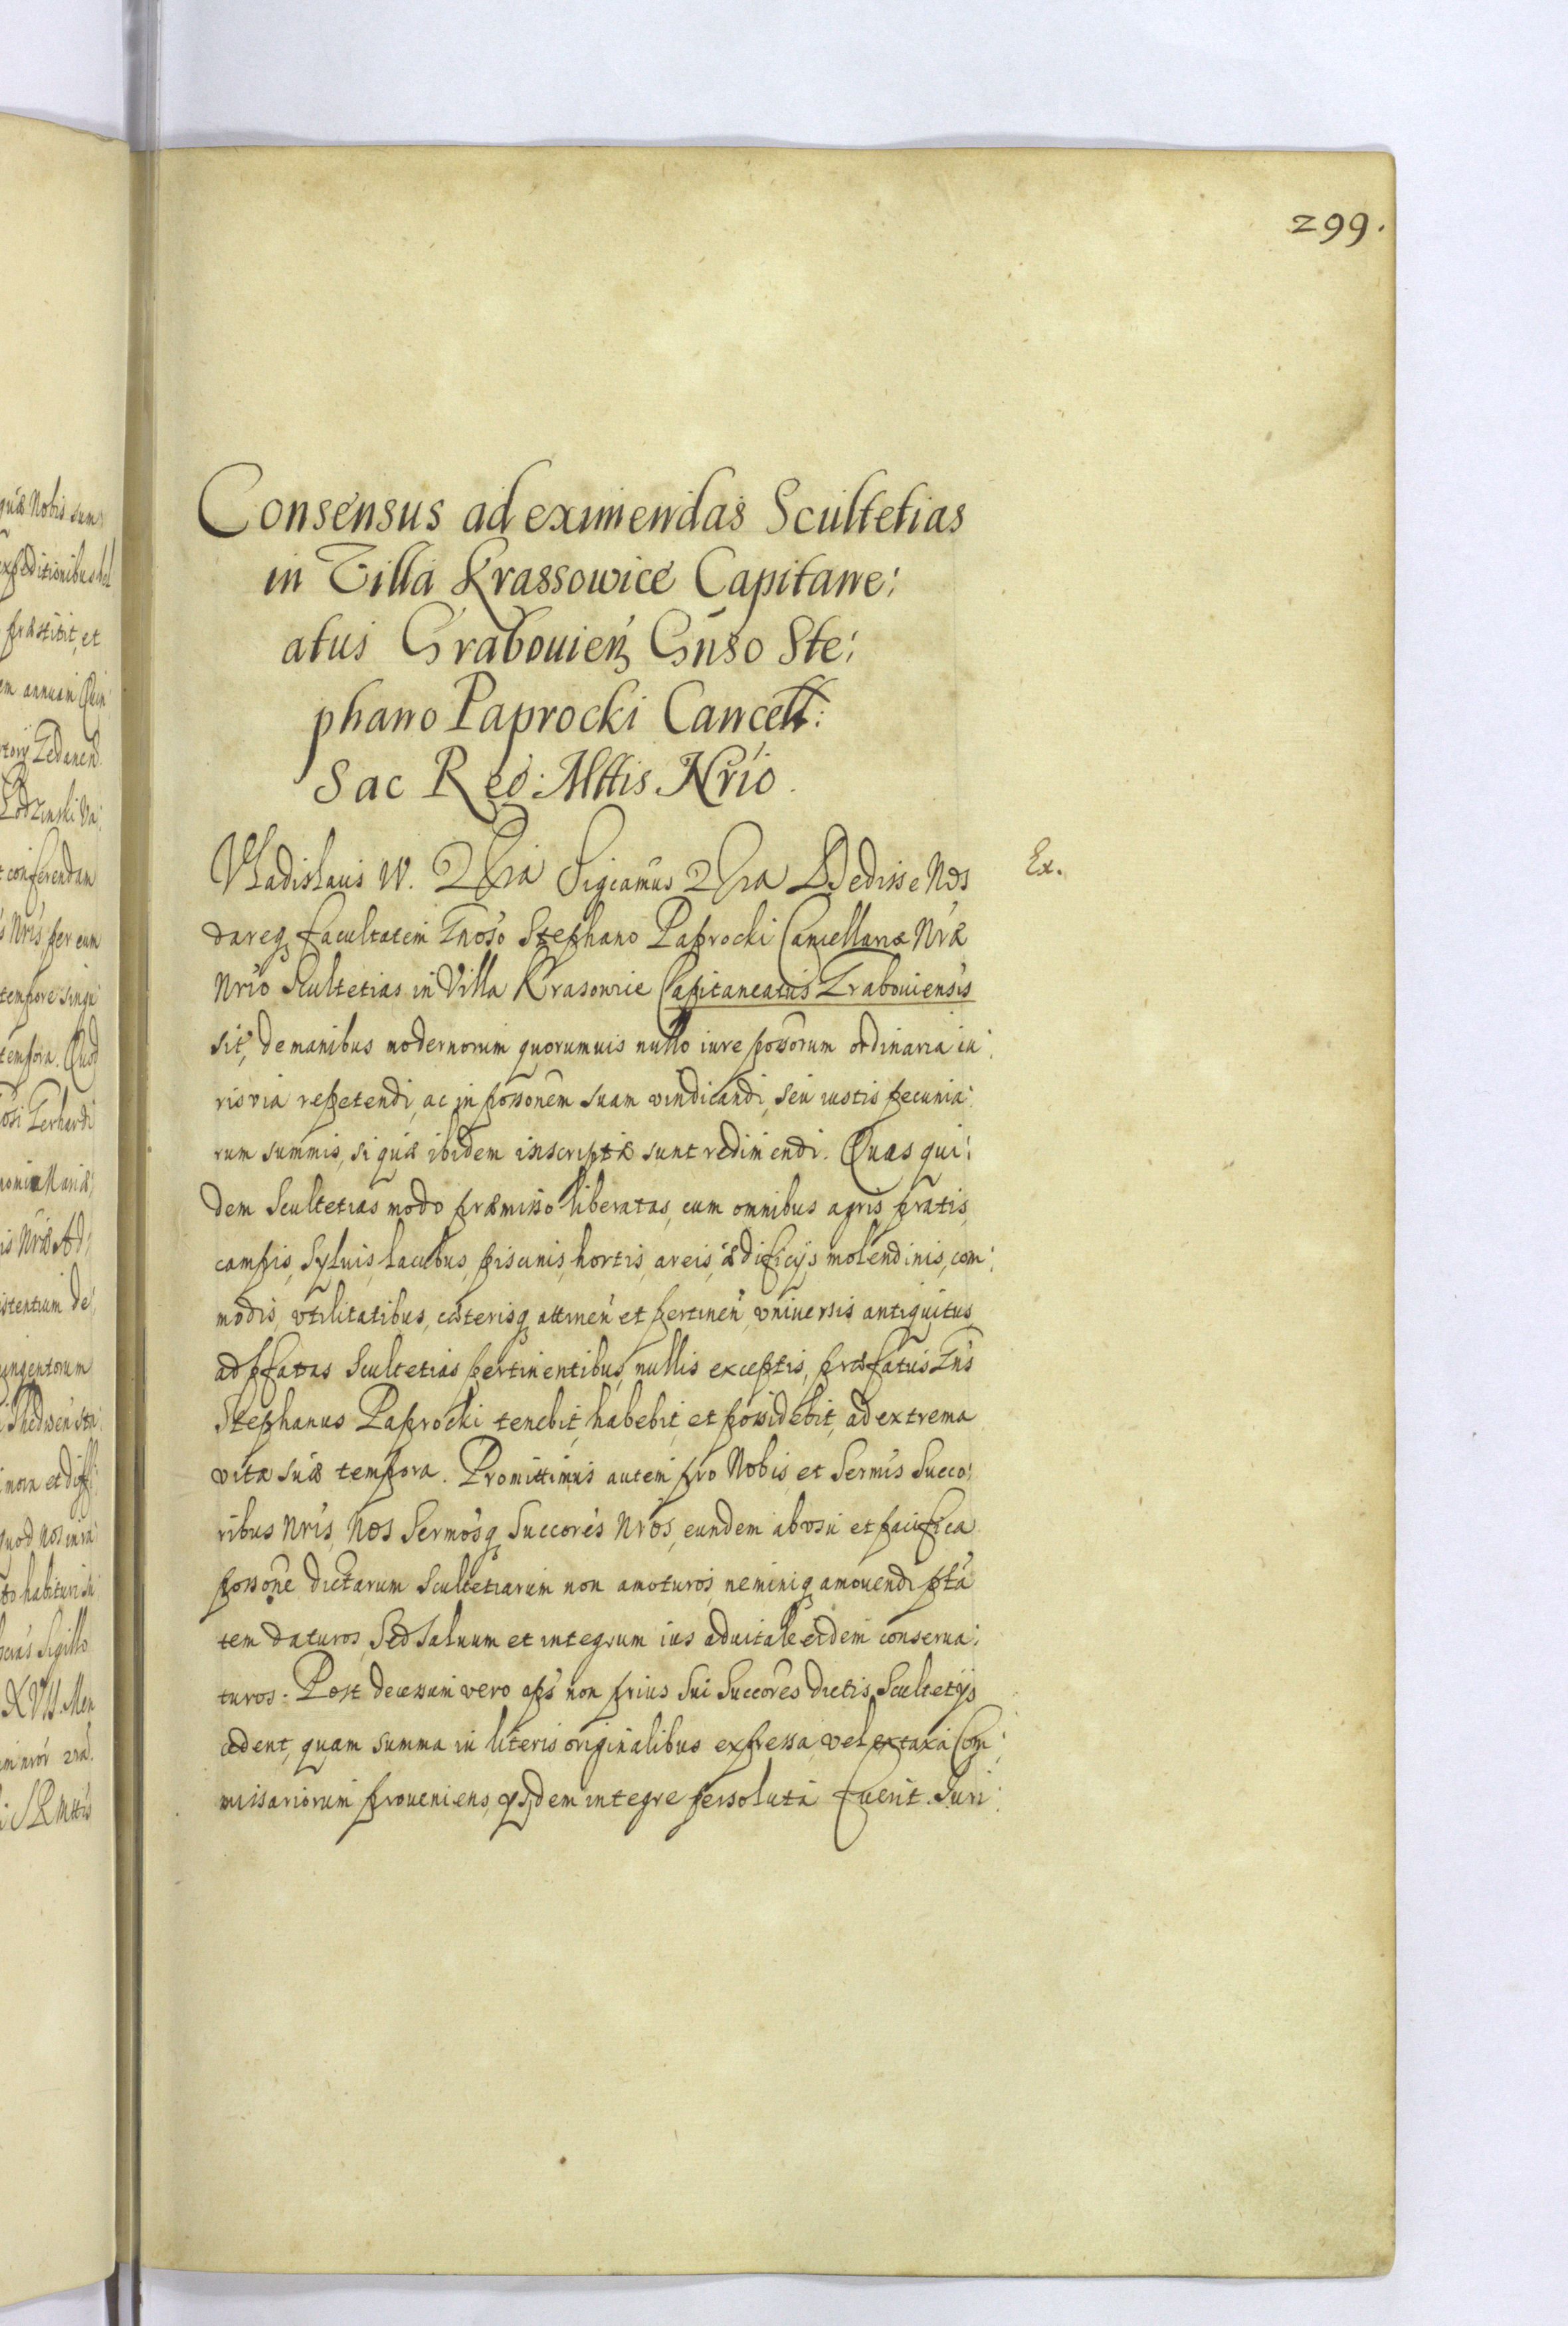 299.
Consensus ad eximendas Scultetias
in Villa Krassowice Capitane:
atus Grabouien Gnso Ste:
phano Paprocki Cancell:
Sac Reg: Mttis Nrio.
Vladislaus IV. &c Significamus &c Dedisse Nos
Ex.
dareq facultatem Gnoso Stephano Paprocki Cancellariæ Nræ
Nrio Scultetias in Villa Krasowice Capitaneatus Grabouiensis
sit, de manibus modernorum quorumuis nullo iure possorum ordinaria iu:
ris via repetendi, ac in possonem suam vindicandi, seu iustis pecunia:
rum summis, si quæ ibidem inscriptæ sunt redimendi. Quas qui:
dem Scultetias modo præmisso liberatas, cum omnibus agris, pratis,
campis, Syluis, lacubus, piscinis, hortis, areis, ædificijs molendinis, com:
modis, vtilitatibus, cæterisq attinen et pertinen vniuersis antiquitus
ad pfatas Scultetias pertinentibus, nullis exceptis, præfatus Gns
Stephanus Paprocki tenebit, habebit, et possidebit, ad extrema
vitæ suæ tempora. Promittimus autem pro Nobis, et Sermis Succo:
ribus Nris, Nos Sermosq Succores Nros, eundem ab vsu et pacifica
possone dictarum Scultetiarum non amoturos, neminiq amouendi ptā
tem daturos, Sed saluum et integrum ius aduitale eidem conserua:
turos. Post decessum vero ips non prius Sui Succores dictis Scultetijs
cedent, quam summa in literis originalibus expressa, vel ex taxa Com:
missariorum proueniens, ijsdem integre persoluta fuerit. Juri: